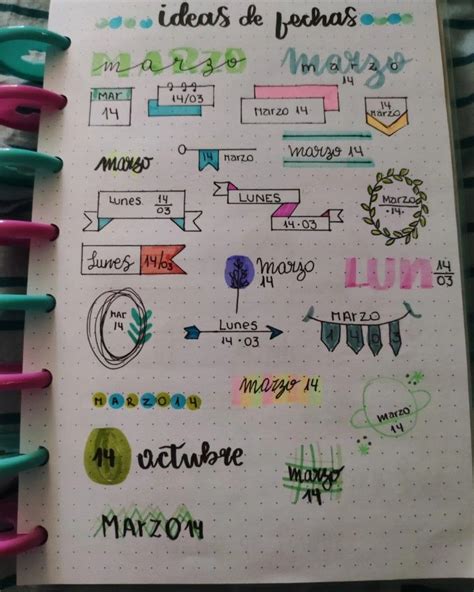 ideas de fechas
marzo
marzo
14
MAR
14
14/03
Marzo 14
14
Marzo
marzo
14 marzo
marzo 14
Lunes 14
03
LUNES
14·03
Marzo
·14·
Lunes 14/03
marzo
14
LUN 14
03
mar
14
Lunes
14·03
MARZO
1403
MARZO14
marzo 14
marzo
14
14 octubre
marzo
14
MARZO 14